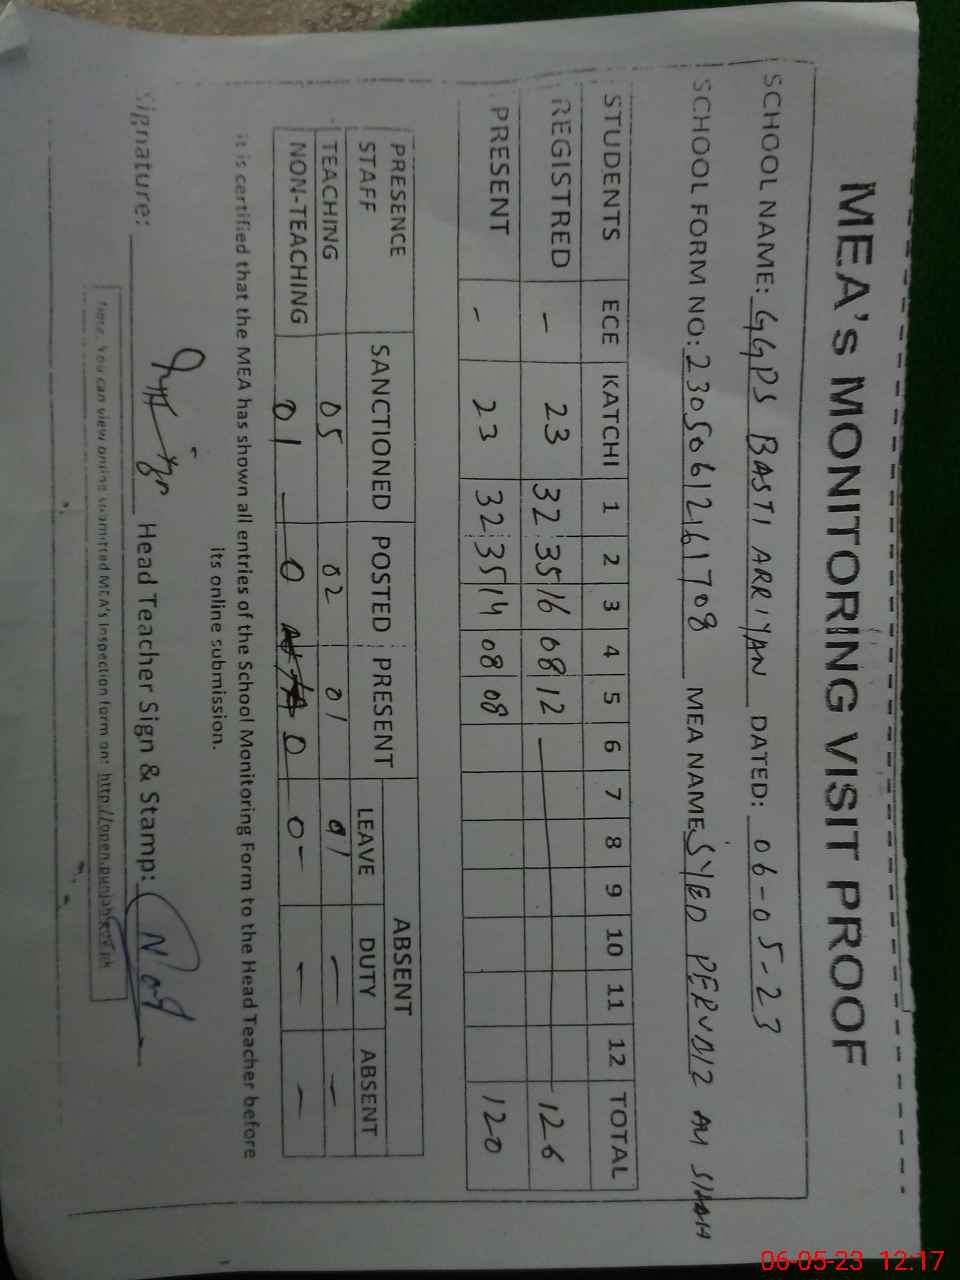 MEA'S MONITORING VISIT PROOF
SCHOOL NAME: GGPS BASTI ARRIYAN DATED: 06-05-23
SCHOOL FORM NO: 23050612161708 MEA NAME SYED PERVAIZ ALI SHAH
STUDENTS ECE KATCHI 1 2 3 4 5 6 7 8 9 10 11 12 TOTAL
REGISTRED - 23 32 35 16 08 12 — 126
PRESENT - 23 32 35 14 08 08 120
PRESENCE STAFF SANCTIONED POSTED PRESENT ABSENT
LEAVE DUTY ABSENT
TEACHING 05 02 01 01 — —
NON-TEACHING 01 0 0 0 — —
it is certified that the MEA has shown all entries of the School Monitoring Form to the Head Teacher before
its online submission.
Signature: Head Teacher Sign & Stamp:
Note: You can view online submitted MEA's Inspection form on: http://open.punjab.gov.pk
06-05-23 12:17